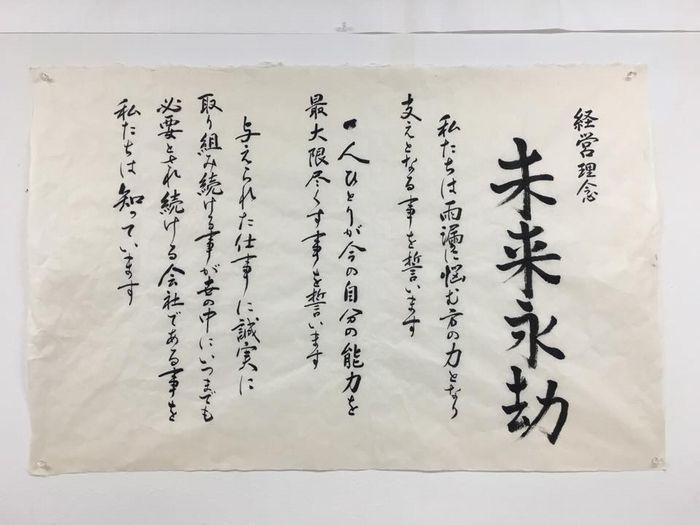 経営理念
未来永劫
私たちは雨漏に悩む方の力となり
支えとなる事を誓います
一人ひとりが今の自分の能力を
最大限尽くす事を誓います
与えられた仕事に誠実に
取り組み続ける事が世の中にいつまでも
必要とされ続ける会社である事を
私たちは知っています